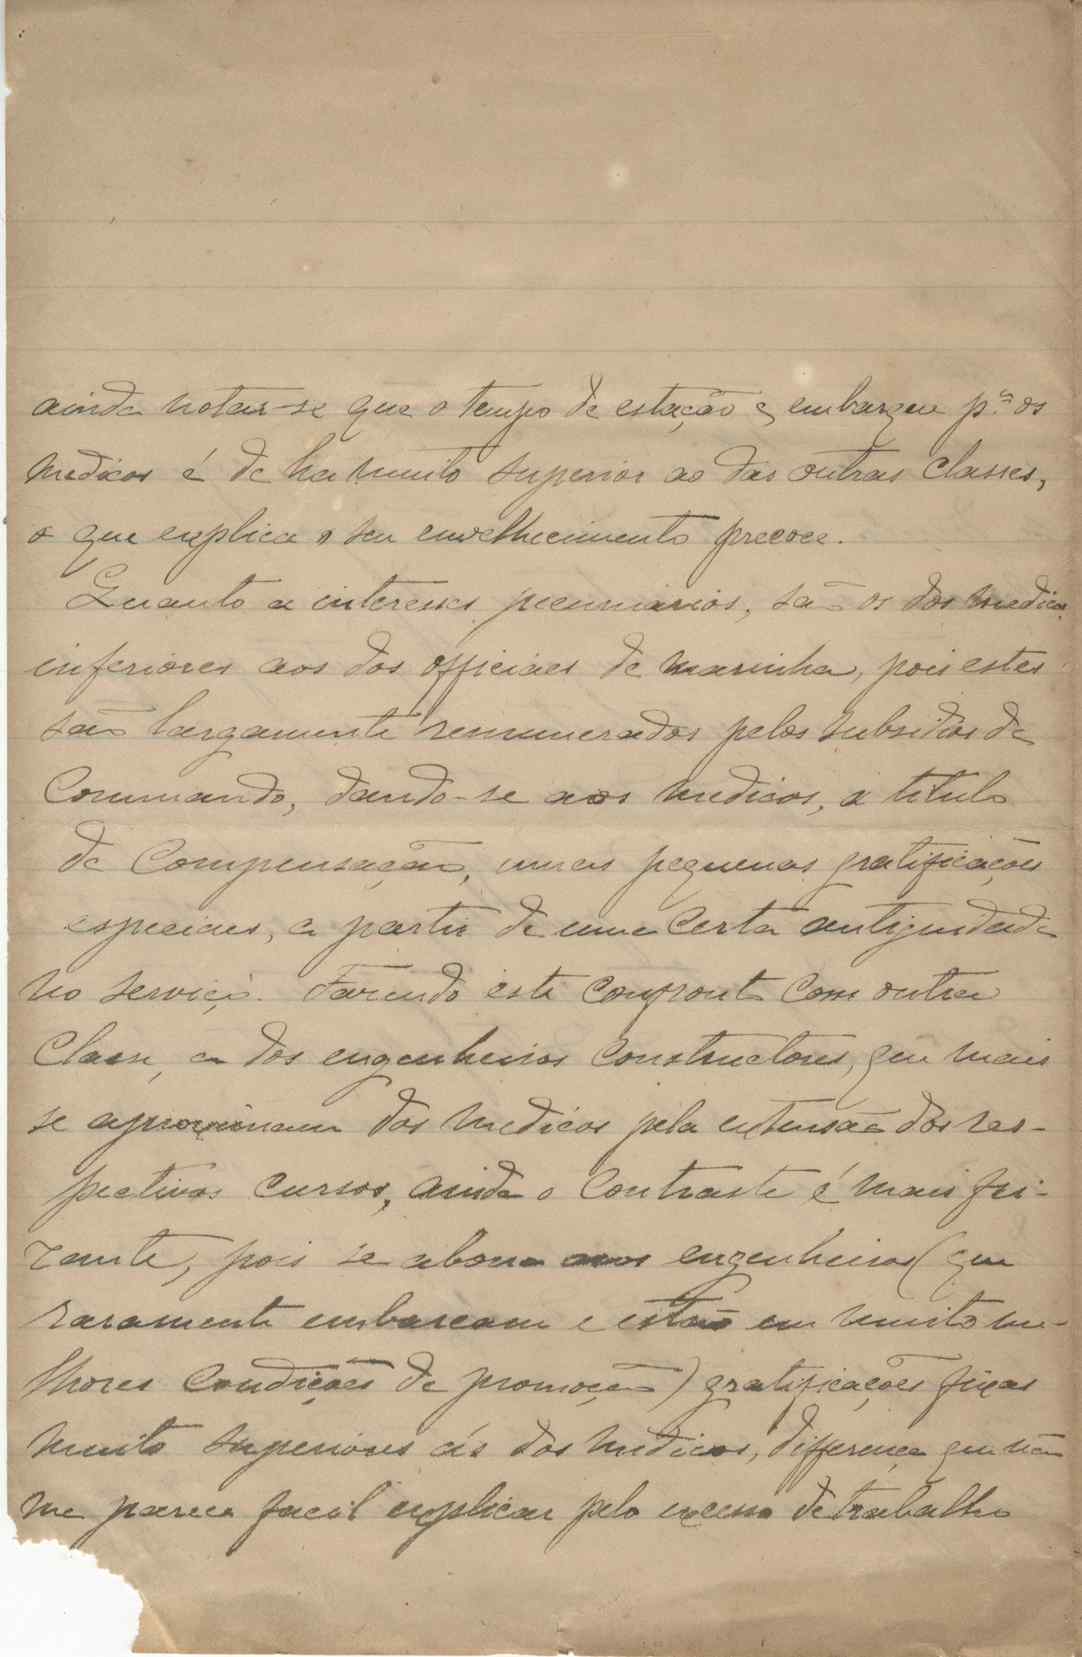 ainda notar-se que o tempo de estação e embarque p.ª os
medicos é de ha muito superior ao das outras classes,
o que explica o seu envelhecimento precoce.
Quanto a interesses pecuniarios, são os dos medicos
inferiores aos dos officiaes de marinha, pois estes
são largamente remunerados pelos subsidios de
Commando, dando-se aos medicos, a titulo
de Compensação, umas pequenas gratificações
especiaes, a partir de uma certa antiguidade
no serviço. Fazendo este confronto com outra
Classe, a dos engenheiros constructores, que mais
se aproximam dos medicos pela extensão dos res-
pectivos cursos, ainda o contraste é mais fri-
zante, pois se abona aos engenheiros (que
raramente embarcam e estão em muito me-
lhores condições de promoção) gratificações fixas
muito superiores ás dos medicos, differença que não
me parece facil explicar pelo excesso de trabalho